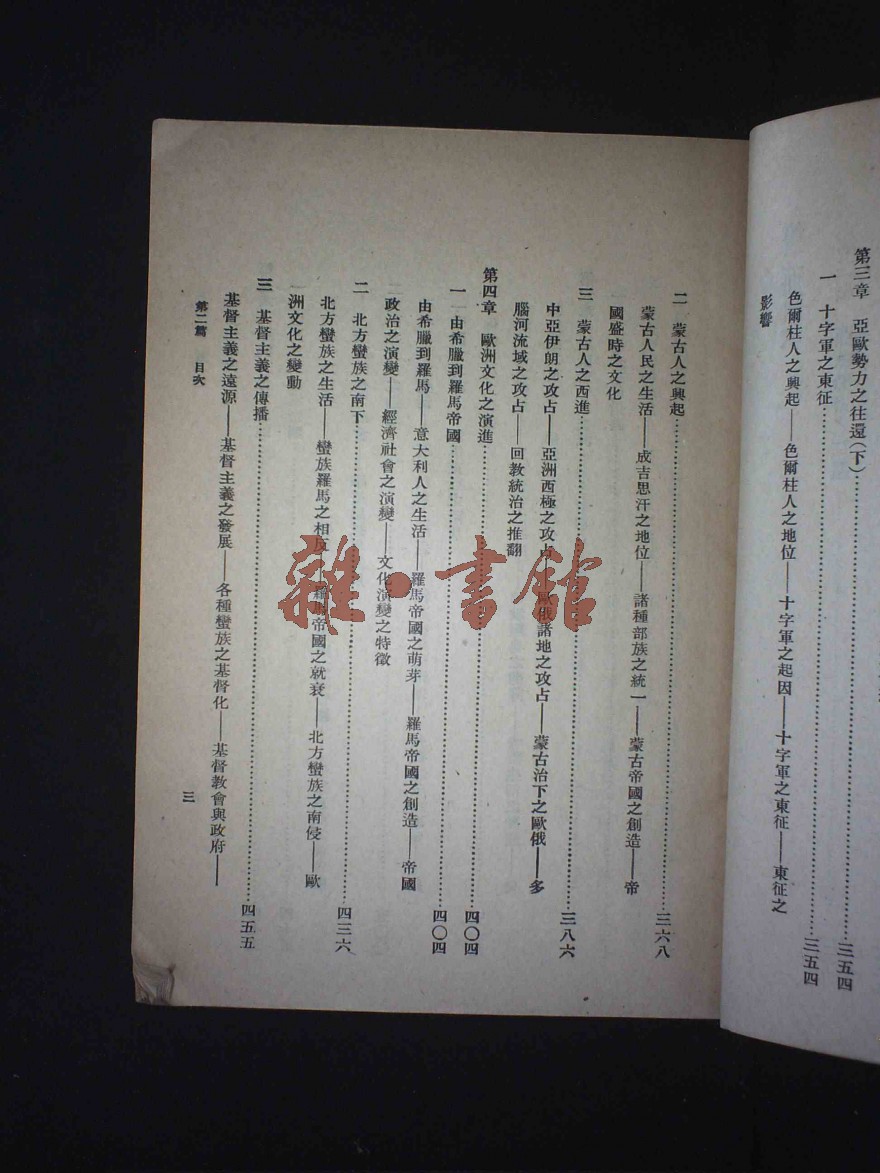 第三章　亞歐勢力之往還(下)……三五四
一　十字軍之東征……三五四
色爾柱人之興起——色爾柱人之地位——十字軍之起因——十字軍之東征——東征之
影響
二　蒙古人之興起……三六八
蒙古人民之生活——成吉思汗之地位——諸種部族之統一——蒙古帝國之創造——帝
國盛時之文化
三　蒙古人之西進……三八六
中亞伊朗之攻占——亞洲西極之攻占——歐俄諸地之攻占——蒙古治下之歐俄——多
腦河流域之攻占——回教統治之推翻
第四章　歐洲文化之演進……四〇四
一　由希臘到羅馬帝國……四〇四
由希臘到羅馬——意大利人之生活——羅馬帝國之萌芽——羅馬帝國之創造——帝國
政治之演變——經濟社會之演變——文化演變之特徵
二　北方蠻族之南下……四三六
北方蠻族之生活——蠻族羅馬之相反——羅馬帝國之就衰——北方蠻族之南侵——歐
洲文化之變動
三　基督主義之傳播……四五五
基督主義之遠源——基督主義之發展——各種蠻族之基督化——基督教會與政府——
第二篇　目次
三
雜·書館